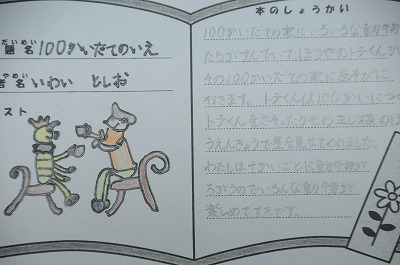 だいめい
題名 100かいだてのいえ
やめい
者名 いわい としお
スト
本のしょうかい
100かいだての家にいろいろな動物
たちがすんでいて、ぼうやのトチくんが
その100かいだての家にあそびに
行きます。トチくんは100かいにつ
トチくんをさそったクモの王子様の
うえんきょうで星を見せてくれました。
わたしは、十かいごとに動物が
ちがうのでいろんな動物が
楽しめてすきです。